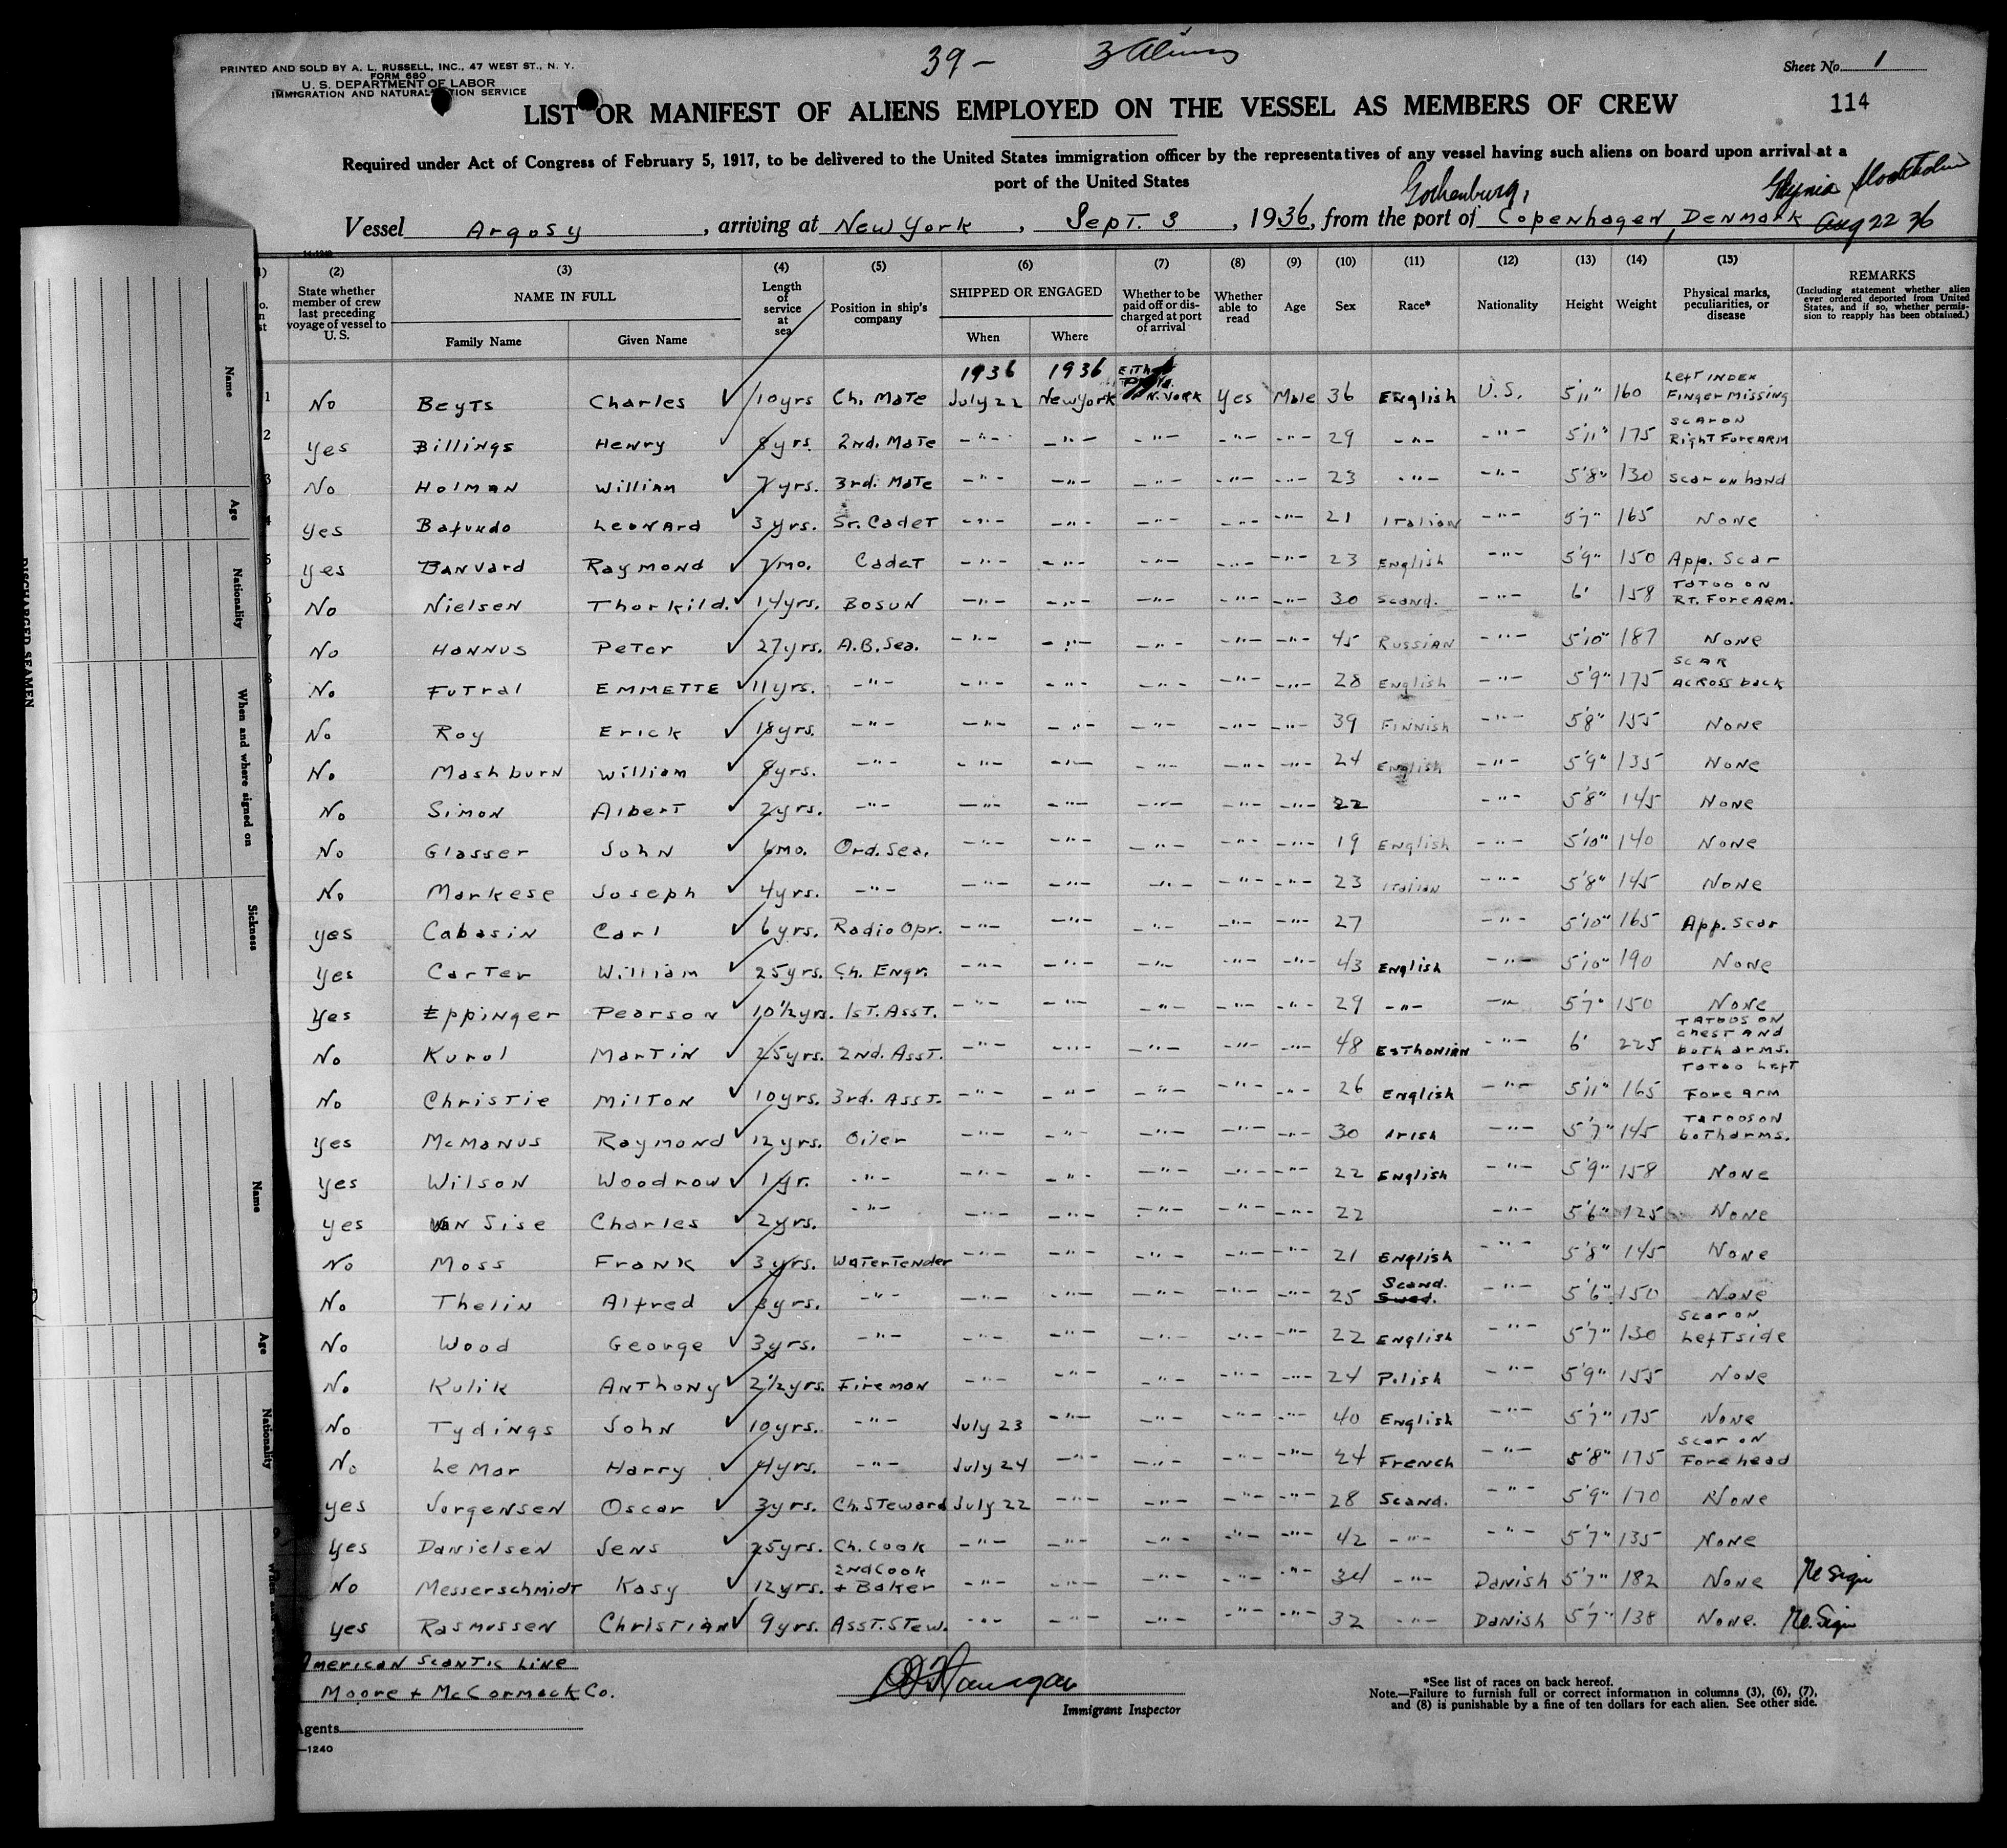 39 — 3 Aliens
PRINTED AND SOLD BY A. L. RUSSELL, INC., 47 WEST ST., N. Y.
FORM 680
U. S. DEPARTMENT OF LABOR
IMMIGRATION AND NATURALIZATION SERVICE
Sheet No. 1
114
LIST OR MANIFEST OF ALIENS EMPLOYED ON THE VESSEL AS MEMBERS OF CREW
Required under Act of Congress of February 5, 1917, to be delivered to the United States immigration officer by the representatives of any vessel having such aliens on board upon arrival at a
port of the United States
Gothenburg, Stockholm
Vessel Argosy, arriving at New York, Sept. 3, 1936, from the port of Copenhagen, Denmark Aug 22 36
(2) (3) (4) (5) (6) (7) (8) (9) (10) (11) (12) (13) (14) (15)
State whether member of crew last preceding voyage of vessel to U. S. | NAME IN FULL | Family Name | Given Name | Length of service at sea | Position in ship's company | SHIPPED OR ENGAGED | When | Where | Whether to be paid off or discharged at port of arrival | Whether able to read | Age | Sex | Race* | Nationality | Height | Weight | Physical marks, peculiarities, or disease | REMARKS (Including statement whether alien ever ordered deported from United States, and if so, whether permission to reapply has been obtained.)
1936 1936
1 No Beyts Charles ✓ 10yrs Ch. Mate July 22 New York N. York Yes Male 36 English U.S. 5'11" 160 Left Index Finger Missing
2 Yes Billings Henry ✓ 8yrs. 2nd. Mate -"- -"- -"- -"- -"- 29 -"- -"- 5'11" 175 Scar on Right Forearm
3 No Holman William ✓ 7yrs. 3rd. Mate -"- -"- -"- -"- -"- 23 -"- -"- 5'8" 130 Scar on hand
4 Yes Bafundo Leonard ✓ 3yrs. Sr. Cadet -"- -"- -"- -"- -"- 21 Italian -"- 5'7" 165 None
5 Yes Banvard Raymond ✓ 7mo. Cadet -"- -"- -"- -"- -"- 23 English -"- 5'9" 150 App. Scar
6 No Nielsen Thorkild. ✓ 14yrs. Bosun -"- -"- -"- -"- -"- 30 Scand. -"- 6' 158 Tatoo on Rt. Forearm.
7 No Hannus Peter ✓ 27yrs. A.B. Sea. -"- -"- -"- -"- -"- 45 Russian -"- 5'10" 187 None
8 No Futral Emmette ✓ 11yrs. -"- -"- -"- -"- -"- -"- 28 English -"- 5'9" 175 Scar Across back
No Roy Erick ✓ 18yrs. -"- -"- -"- -"- -"- -"- 39 Finnish -"- 5'8" 155 None
No Mashburn William ✓ 8yrs. -"- -"- -"- -"- -"- -"- 24 English -"- 5'9" 135 None
No Simon Albert ✓ 2yrs. -"- -"- -"- -"- -"- -"- 22 -"- 5'8" 145 None
No Glasser John ✓ 6mo. Ord. Sea. -"- -"- -"- -"- -"- 19 English -"- 5'10" 140 None
No Markese Joseph ✓ 4yrs. -"- -"- -"- -"- -"- -"- 23 Italian -"- 5'8" 145 None
Yes Cabasin Carl ✓ 6yrs. Radio Opr. -"- -"- -"- -"- -"- 27 -"- 5'10" 165 App. Scar
Yes Carter William ✓ 25yrs. Ch. Engr. -"- -"- -"- -"- -"- 43 English -"- 5'10" 190 None
Yes Eppinger Pearson ✓ 10½yrs. 1st. Asst. -"- -"- -"- -"- -"- 29 -"- -"- 5'7" 150 None
No Kurol Martin ✓ 25yrs. 2nd. Asst. -"- -"- -"- -"- -"- 48 Esthonian -"- 6' 225 Tatoos on chest and both arms.
No Christie Milton ✓ 10yrs. 3rd. Asst. -"- -"- -"- -"- -"- 26 English -"- 5'11" 165 Tatoo Left Fore arm
Yes McManus Raymond ✓ 12yrs. Oiler -"- -"- -"- -"- -"- 30 Irish -"- 5'7" 145 Tatoos on both arms.
Yes Wilson Woodrow ✓ 1yr. -"- -"- -"- -"- -"- -"- 22 English -"- 5'9" 158 None
Yes Van Sise Charles ✓ 2yrs. -"- -"- -"- -"- -"- -"- 22 -"- 5'6" 125 None
No Moss Frank ✓ 3yrs. Watertender -"- -"- -"- -"- -"- 21 English -"- 5'8" 145 None
No Thelin Alfred ✓ 3yrs. -"- -"- -"- -"- -"- -"- 25 Scand. Swed. -"- 5'6" 150 None
No Wood George ✓ 3yrs. -"- -"- -"- -"- -"- -"- 22 English -"- 5'7" 130 Scar on Left side
No Kulik Anthony ✓ 2½yrs. Fireman -"- -"- -"- -"- -"- 24 Polish -"- 5'9" 155 None
No Tydings John ✓ 10yrs. -"- July 23 -"- -"- -"- -"- 40 English -"- 5'7" 175 None
No Le Mar Harry ✓ 4yrs. -"- July 24 -"- -"- -"- -"- 24 French -"- 5'8" 175 Scar on Forehead
Yes Jorgensen Oscar ✓ 3yrs. Ch. Steward July 22 -"- -"- -"- -"- 28 Scand. -"- 5'9" 170 None
Yes Danielsen Jens 25yrs. Ch. Cook -"- -"- -"- -"- -"- 42 -"- -"- 5'7" 135 None
No Messerschmidt Kasy ✓ 12yrs. 2nd Cook + Baker -"- -"- -"- -"- -"- 34 -"- Danish 5'7" 182 None Re Sign
Yes Rasmussen Christian ✓ 9yrs. Asst. Stew. -"- -"- -"- -"- -"- 32 -"- Danish 5'7" 138 None. Re. Sign
American Scantic Line
Moore + McCormack Co.
Agents
Immigrant Inspector
*See list of races on back hereof.
Note.—Failure to furnish full or correct information in columns (3), (6), (7),
and (8) is punishable by a fine of ten dollars for each alien. See other side.
—1240
Name
Age
Nationality
When and where signed on
Sickness
Name
Age
Nationality
DISCHARGED SEAMEN